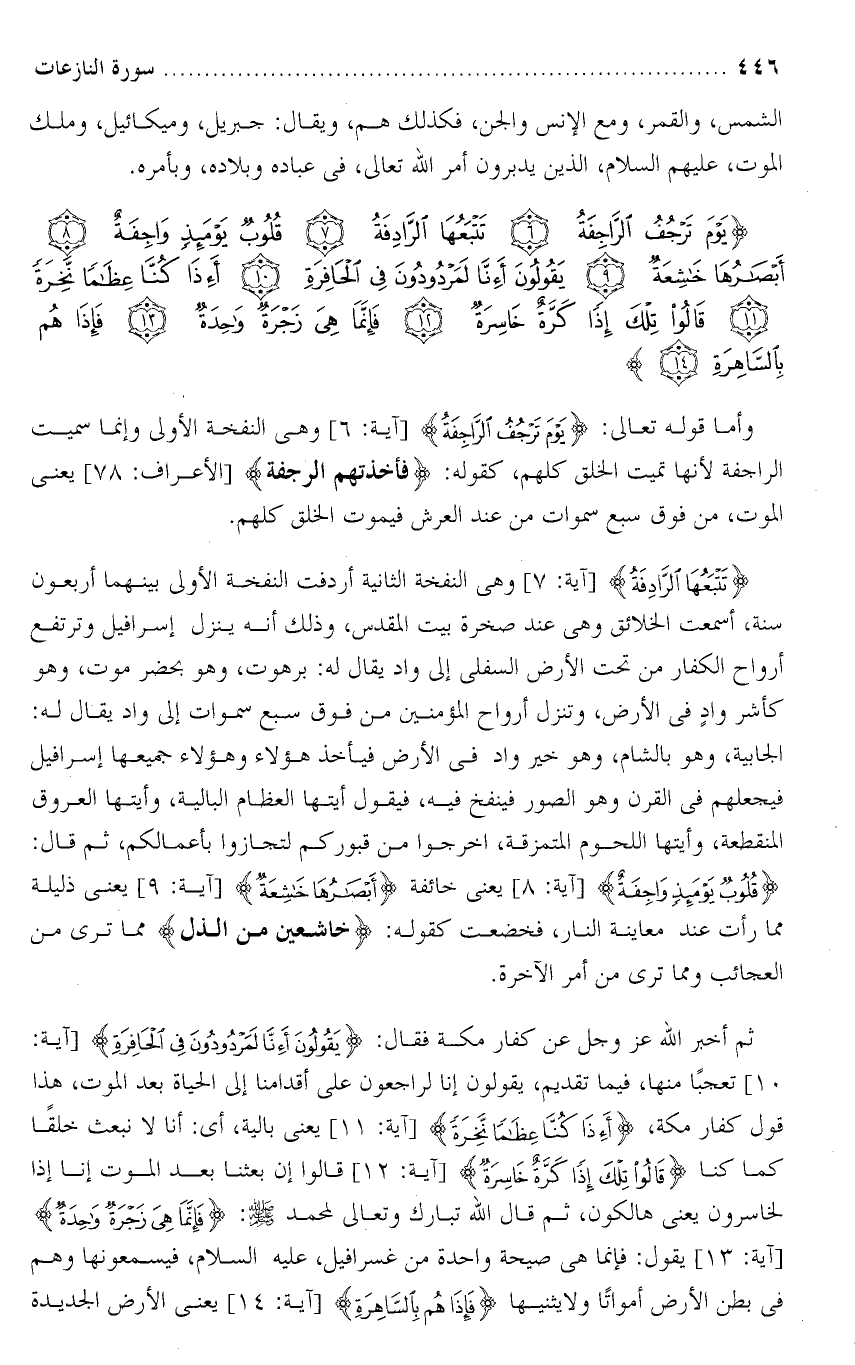 ٤٤٦ ........................................................................ سورة النازعات
الشمس، والقمر، ومع الإنس والجن، فكذلك هم، ويقال: جبريل، وميكائيل، وملك
الموت، عليهم السلام، الذين يدبرون أمر الله تعالى، فى عباده وبلاده، وبأمره.
﴿يَوْمَ تَرْجُفُ ٱلرَّاجِفَةُ ٦ تَتْبَعُهَا ٱلرَّادِفَةُ ٧ قُلُوبٌ يَوْمَئِذٍ وَاجِفَةٌ ٨
أَبْصَٰرُهَا خَٰشِعَةٌ ٩ يَقُولُونَ أَءِنَّا لَمَرْدُودُونَ فِى ٱلْحَافِرَةِ ١٠ أَءِذَا كُنَّا عِظَٰمًا نَّخِرَةً
١١ قَالُوا۟ تِلْكَ إِذًا كَرَّةٌ خَاسِرَةٌ ١٢ فَإِنَّمَا هِىَ زَجْرَةٌ وَٰحِدَةٌ ١٣ فَإِذَا هُم
بِٱلسَّاهِرَةِ ١٤ ﴾
وأما قوله تعالى: ﴿يَوْمَ تَرْجُفُ ٱلرَّاجِفَةُ﴾ [آية: ٦] وهى النفخة الأولى وإنما سميت
الراجفة لأنها تميت الخلق كلهم، كقوله: ﴿فأخذتهم الرجفة﴾ [الأعراف: ٧٨] يعنى
الموت، من فوق سبع سموات من عند العرش فيموت الخلق كلهم.
﴿تَتْبَعُهَا ٱلرَّادِفَةُ﴾ [آية: ٧] وهى النفخة الثانية أردفت النفخة الأولى بينهما أربعون
سنة، أسمعت الخلائق وهى عند صخرة بيت المقدس، وذلك أنه ينزل إسرافيل وترتفع
أرواح الكفار من تحت الأرض السفلى إلى واد يقال له: برهوت، وهو بحضر موت، وهو
كأشر وادٍ فى الأرض، وتنزل أرواح المؤمنين من فوق سبع سموات إلى واد يقال له:
الجابية، وهو بالشام، وهو خير واد فى الأرض فيأخذ هؤلاء وهؤلاء جميعها إسرافيل
فيجعلهم فى القرن وهو الصور فينفخ فيه، فيقول أيتها العظام البالية، وأيتها العروق
المنقطعة، وأيتها اللحوم المتمزقة، اخرجوا من قبوركم لتجازوا بأعمالكم، ثم قال:
﴿قُلُوبٌ يَوْمَئِذٍ وَاجِفَةٌ﴾ [آية: ٨] يعنى خائفة ﴿أَبْصَٰرُهَا خَٰشِعَةٌ﴾ [آية: ٩] يعنى ذليلة
مما رأت عند معاينة النار، فخضعت كقوله: ﴿خاشعين من الذل﴾ مما ترى من
العجائب ومما ترى من أمر الآخرة.
ثم أخبر الله عز وجل عن كفار مكة فقال: ﴿يَقُولُونَ أَءِنَّا لَمَرْدُودُونَ فِى ٱلْحَافِرَةِ﴾ [آية:
١٠] تعجبًا منها، فيما تقديم، يقولون إنا لراجعون على أقدامنا إلى الحياة بعد الموت، هذا
قول كفار مكة، ﴿أَءِذَا كُنَّا عِظَٰمًا نَّخِرَةً﴾ [آية: ١١] يعنى بالية، أى: أنا لا نبعث خلقًا
كما كنا ﴿قَالُوا۟ تِلْكَ إِذًا كَرَّةٌ خَاسِرَةٌ﴾ [آية: ١٢] قالوا إن بعثنا بعد الموت إنا إذا
لخاسرون يعنى هالكون، ثم قال الله تبارك وتعالى لمحمد ﷺ: ﴿فَإِنَّمَا هِىَ زَجْرَةٌ وَٰحِدَةٌ﴾
[آية: ١٣] يقول: فإنما هى صيحة واحدة من غسرافيل، عليه السلام، فيسمعونها وهم
فى بطن الأرض أمواتًا ولايثنيها ﴿فَإِذَا هُم بِٱلسَّاهِرَةِ﴾ [آية: ١٤] يعنى الأرض الجديدة